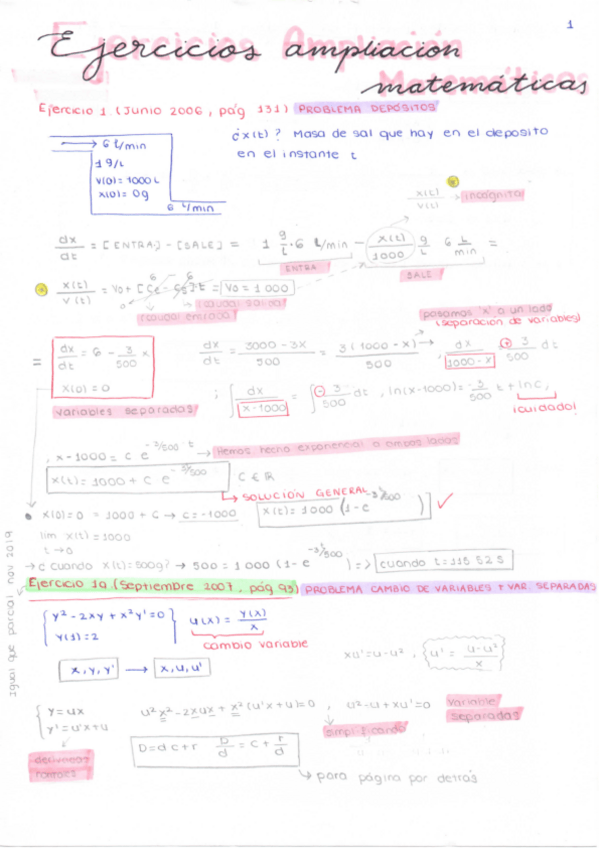 1
Ejercicios ampliación
matemáticas
Ejercicio 1 (Junio 2006, pág 131) PROBLEMA DEPÓSITOS
→ 6 l/min
1 g/L
V(0)= 1000 L
x(0)= 0g
6 l/min
¿x(t)? Masa de sal que hay en el deposito
en el instante t
x(t)/V(t) → incógnita
dx/dt = [ENTRA] - [SALE] = 1 g/L · 6 L/min - x(t)/1000 g/L 6 L/min =
ENTRA
SALE
x(t)/V(t) = V0 + [Ce - Cs]t = V0 = 1000
caudal salida
caudal entrada
pasamos 'x' a un lado
(separación de variables)
= dx/dt = 6 - 3/500 x
x(0) = 0
dx/dt = 3000 - 3x/500 = 3(1000 - x)/500 → dx/1000-x = 3/500 dt
variables separadas
; ∫ dx/x-1000 = ∫ - 3/500 dt , ln(x-1000) = -3/500 t + ln C,
¡cuidado!
, x - 1000 = c e^-3/500 t → Hemos hecho exponencial a ambos lados
x(t) = 1000 + c e^-3/500 C ∈ R
→ SOLUCIÓN GENERAL
• x(0)=0 = 1000 + C → c = -1000 x(t) = 1000 (1 - e^-3/500) ✓
lim x(t) = 1000
t→0
→ c cuando x(t) = 500g? → 500 = 1000 (1 - e^-3/500) = > cuando t = 115 525
Igual que parcial nov 2019
Ejercicio 1a (Septiembre 2007, pág 93) PROBLEMA CAMBIO DE VARIABLES + VAR. SEPARADAS
y² - 2xy + x²y' = 0
y(1) = 2
u(x) = y(x)/x
cambio variable
x, y, y' → x, u, u'
xu' = u - u² , u' = u - u²/x
y = ux
y' = u'x + u
u²x² - 2xux + x²(u'x + u) = 0 , u² - u + xu' = 0
variable
separadas
simplificando
derivamos
D = d c + r D/d = c + r/d
→ para página por detrás